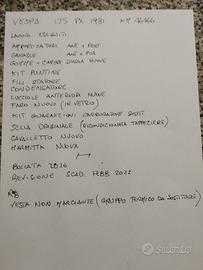 VESPA 125 PX 1981 KM 46466
LAVORI ESEGUITI
AMMORTIZZATORI ANT + POST
GANASCE ANT + POS
GOMME + CAMERE D'ARIA NUOVE
KIT PUNTINE
FILI STATORE
CONDENSATORE
LUCCIOLE ANTERIORI NUOVE
FARO NUOVO (IN VETRO)
KIT GUARNIZIONI CARBURATORE SOSTIT.
SELLA ORIGINALE (RICONDIZIONATA TAPPEZZIERE)
CAVALLETTO NUOVO
MARMITTA NUOVA
BOLLATA 2026
REVISIONE SCAD. FEBB 2022
VESPA NON MARCIANTE (GRUPPO TERMICO DA SOSTITUIRE)
Subito